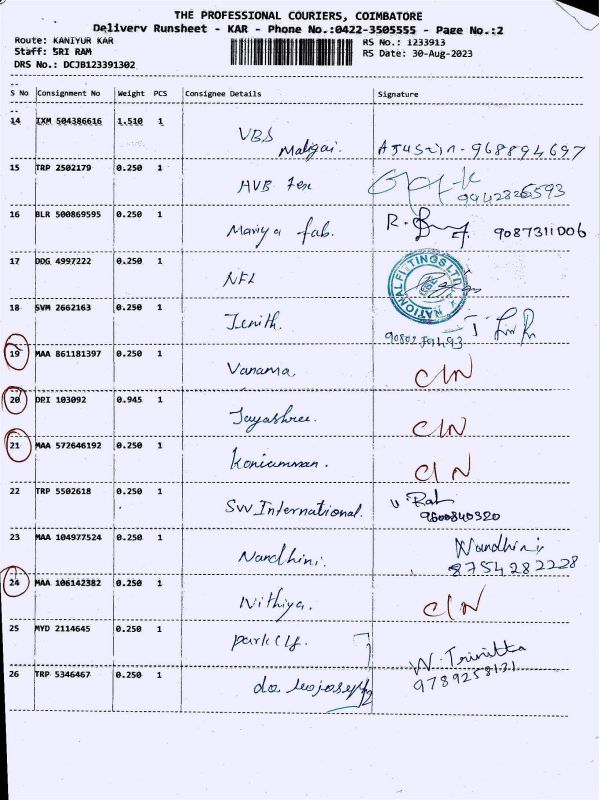 THE PROFESSIONAL COURIERS, COIMBATORE
Delivery Runsheet - KAR - Phone No.:0422-3505555 - Page No.:2
Route: KANIYUR KAR
RS No.: 1233913
Staff: SRI RAM
RS Date: 30-Aug-2023
DRS No.: DCJB123391302
S No Consignment No Weight PCS Consignee Details Signature
14 IXM 504386616 1.510 1
VBS
Maligai. 968894697
15 TRP 2502179 0.250 1
AVB Tex
9942826593
16 BLR 500869595 0.250 1
Mariya fab. R. 9087311006
17 DDG 4997222 0.250 1
NFL
NATIONAL FITTINGS LTD
18 SVM 2662163 0.250 1
Zenith.
19 MAA 861181397 0.250 1
Vanama C/N
20 DRI 103092 0.945 1
Jayashree. C/N
21 MAA 572646192 0.250 1
Koniamman. C/N
22 TRP 5502618 0.250 1
SVV International.
9600840320
23 MAA 104977524 0.250 1
Nandhini. Nandhini
8754282228
24 MAA 106142382 0.250 1
Nithiya. C/N
25 MYD 2114645 0.250 1
26 TRP 5346467 0.250 1
9789258131